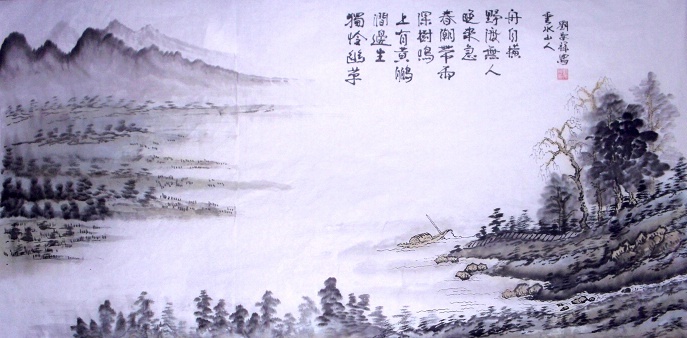 獨怜幽草
澗邊生
上有黃鸝
深樹鳴
春潮帶雨
晚來急
野渡無人
舟自橫
雲水山人
劉